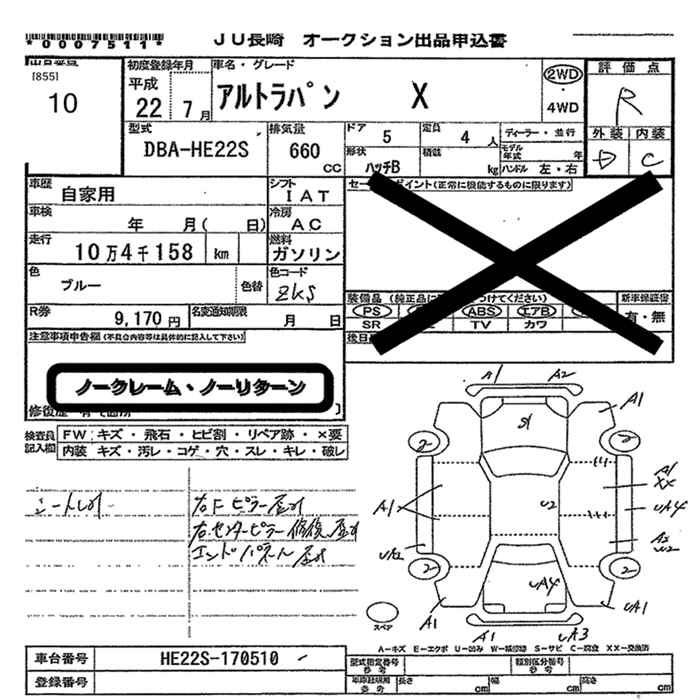 *0007511* JU長崎 オークション出品申込書
[855] 初度登録年月 車名・グレード 2WD 評価点
10 平成 22 7月 アルトラパン X 4WD R
型式 排気量 ドア 5 定員 4人 ディーラー・並行 外装 内装
DBA-HE22S 660 CC 形状 ハッチB 積載 kg モデル年式 年 D C
ハンドル 左・右
車歴 自家用 シフト IAT セールスポイント(正常に機能するものに限ります)
車検 年 月( 日) 冷房 AC
走行 10万4千158 km 燃料 ガソリン
色 ブルー 色替 色コード ZKS 装備品 (純正品に つけてください) 新車保証書
R券 9,170円 名変通知期限 月 日 PS ABS エアB 有・無
SR TV カワ
注意事項申告欄(不具合内容等は具体的に記入して下さい) 後日
ノークレーム・ノーリターン
修復歴
検査員記入欄 FW キズ・飛石・ヒビ割・リペア跡・×要
内装 キズ・汚レ・コゲ・穴・スレ・キレ・破レ
右Fピラー
右センターピラー修復
エンドパネル
A1 A2
S1 A1
2 2
A1 U2 A1 XX
UA4
A2 U2
2 2
UA4
A1 UA1
スペア A1 UA3
A-キズ E-エクボ U-凹み W-補修跡 S-サビ C-腐食 XX-交換済
車台番号 HE22S-170510 型式指定番号 参考 類別区分番号 参考
登録番号 参考 長さ cm 幅 cm 高さ cm